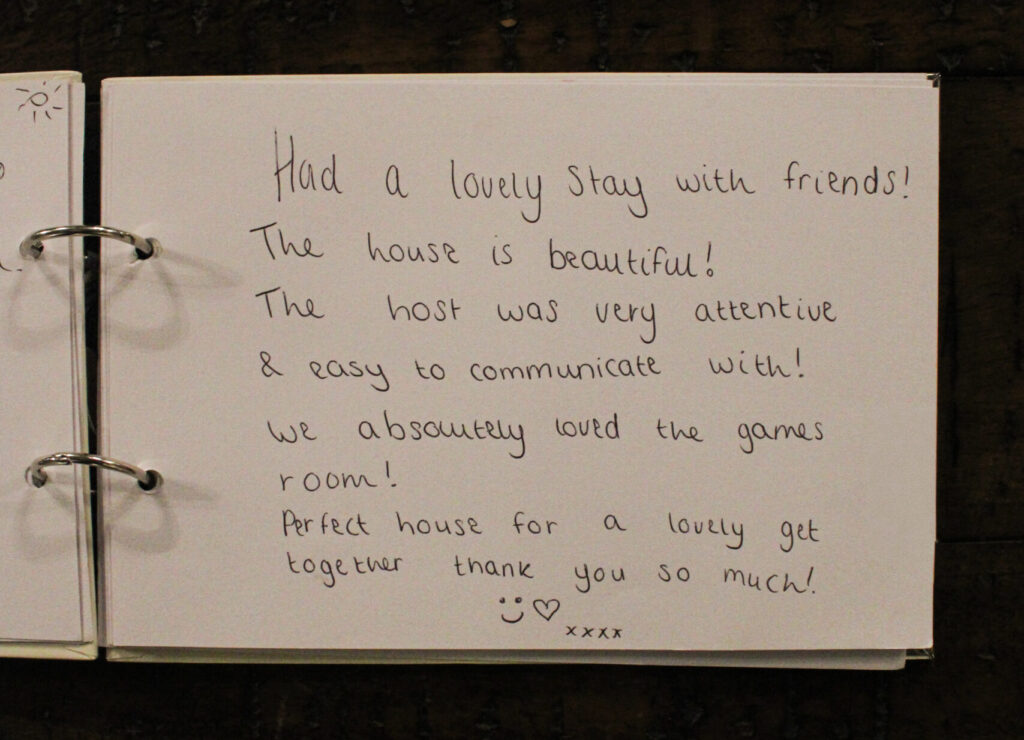 Had a lovely stay with friends!
The house is beautiful!
The host was very attentive
& easy to communicate with!
we absolutely loved the games
room!
Perfect house for a lovely get
together thank you so much!
xxxx